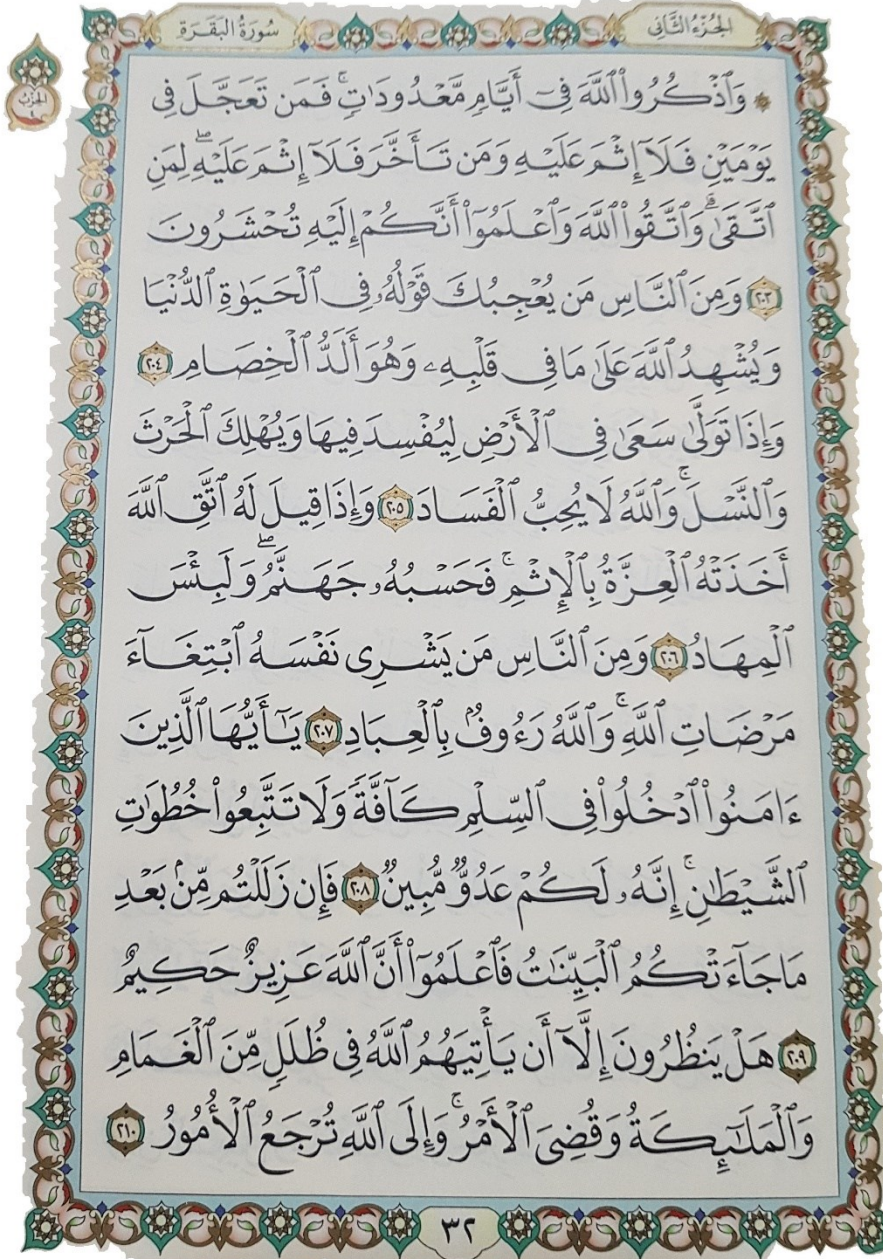 الجُزْءُ الثَّانِي
سُورَةُ البَقَرَةِ
الحِزْبُ
۞ وَٱذْكُرُوا۟ ٱللَّهَ فِىٓ أَيَّامٍ مَّعْدُودَٰتٍ ۚ فَمَن تَعَجَّلَ فِى
يَوْمَيْنِ فَلَآ إِثْمَ عَلَيْهِ وَمَن تَأَخَّرَ فَلَآ إِثْمَ عَلَيْهِ ۖ لِمَنِ
ٱتَّقَىٰ ۗ وَٱتَّقُوا۟ ٱللَّهَ وَٱعْلَمُوٓا۟ أَنَّكُمْ إِلَيْهِ تُحْشَرُونَ
٢٠٣ وَمِنَ ٱلنَّاسِ مَن يُعْجِبُكَ قَوْلُهُۥ فِى ٱلْحَيَوٰةِ ٱلدُّنْيَا
وَيُشْهِدُ ٱللَّهَ عَلَىٰ مَا فِى قَلْبِهِۦ وَهُوَ أَلَدُّ ٱلْخِصَامِ ٢٠٤
وَإِذَا تَوَلَّىٰ سَعَىٰ فِى ٱلْأَرْضِ لِيُفْسِدَ فِيهَا وَيُهْلِكَ ٱلْحَرْثَ
وَٱلنَّسْلَ ۚ وَٱللَّهُ لَا يُحِبُّ ٱلْفَسَادَ ٢٠٥ وَإِذَا قِيلَ لَهُ ٱتَّقِ ٱللَّهَ
أَخَذَتْهُ ٱلْعِزَّةُ بِٱلْإِثْمِ ۚ فَحَسْبُهُۥ جَهَنَّمُ ۖ وَلَبِئْسَ
ٱلْمِهَادُ ٢٠٦ وَمِنَ ٱلنَّاسِ مَن يَشْرِى نَفْسَهُ ٱبْتِغَآءَ
مَرْضَاتِ ٱللَّهِ ۚ وَٱللَّهُ رَءُوفٌۢ بِٱلْعِبَادِ ٢٠٧ يَٰٓأَيُّهَا ٱلَّذِينَ
ءَامَنُوا۟ ٱدْخُلُوا۟ فِى ٱلسِّلْمِ كَآفَّةً وَلَا تَتَّبِعُوا۟ خُطُوَٰتِ
ٱلشَّيْطَٰنِ ۚ إِنَّهُۥ لَكُمْ عَدُوٌّ مُّبِينٌ ٢٠٨ فَإِن زَلَلْتُم مِّنۢ بَعْدِ
مَا جَآءَتْكُمُ ٱلْبَيِّنَٰتُ فَٱعْلَمُوٓا۟ أَنَّ ٱللَّهَ عَزِيزٌ حَكِيمٌ
٢٠٩ هَلْ يَنظُرُونَ إِلَّآ أَن يَأْتِيَهُمُ ٱللَّهُ فِى ظُلَلٍ مِّنَ ٱلْغَمَامِ
وَٱلْمَلَٰٓئِكَةُ وَقُضِىَ ٱلْأَمْرُ ۚ وَإِلَى ٱللَّهِ تُرْجَعُ ٱلْأُمُورُ ٢١٠
٣٢